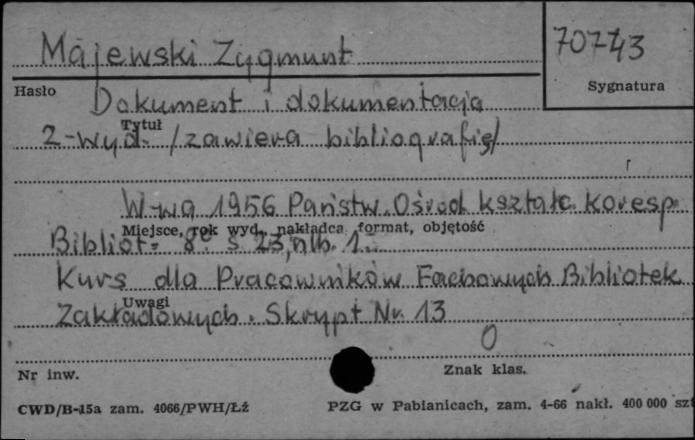 Majewski Zygmunt
70743
Sygnatura
Hasło
Dokument i dokumentacja
Tytuł
2-wyd. /zawiera bibliografię/
W-wa 1956 Państw. Ośrod kształc. koresp.
Miejsce, rok wyd., nakładca, format, objętość
Bibliot. 8° s 23, nlb. 1.
Kurs dla Pracowników Fachowych Bibliotek
Uwagi
Zakładowych. Skrypt Nr 13
0
Nr inw.
Znak klas.
CWD/B-15a zam. 4066/PWH/Łź
PZG w Pabianicach, zam. 4-66 nakł. 400 000 szt